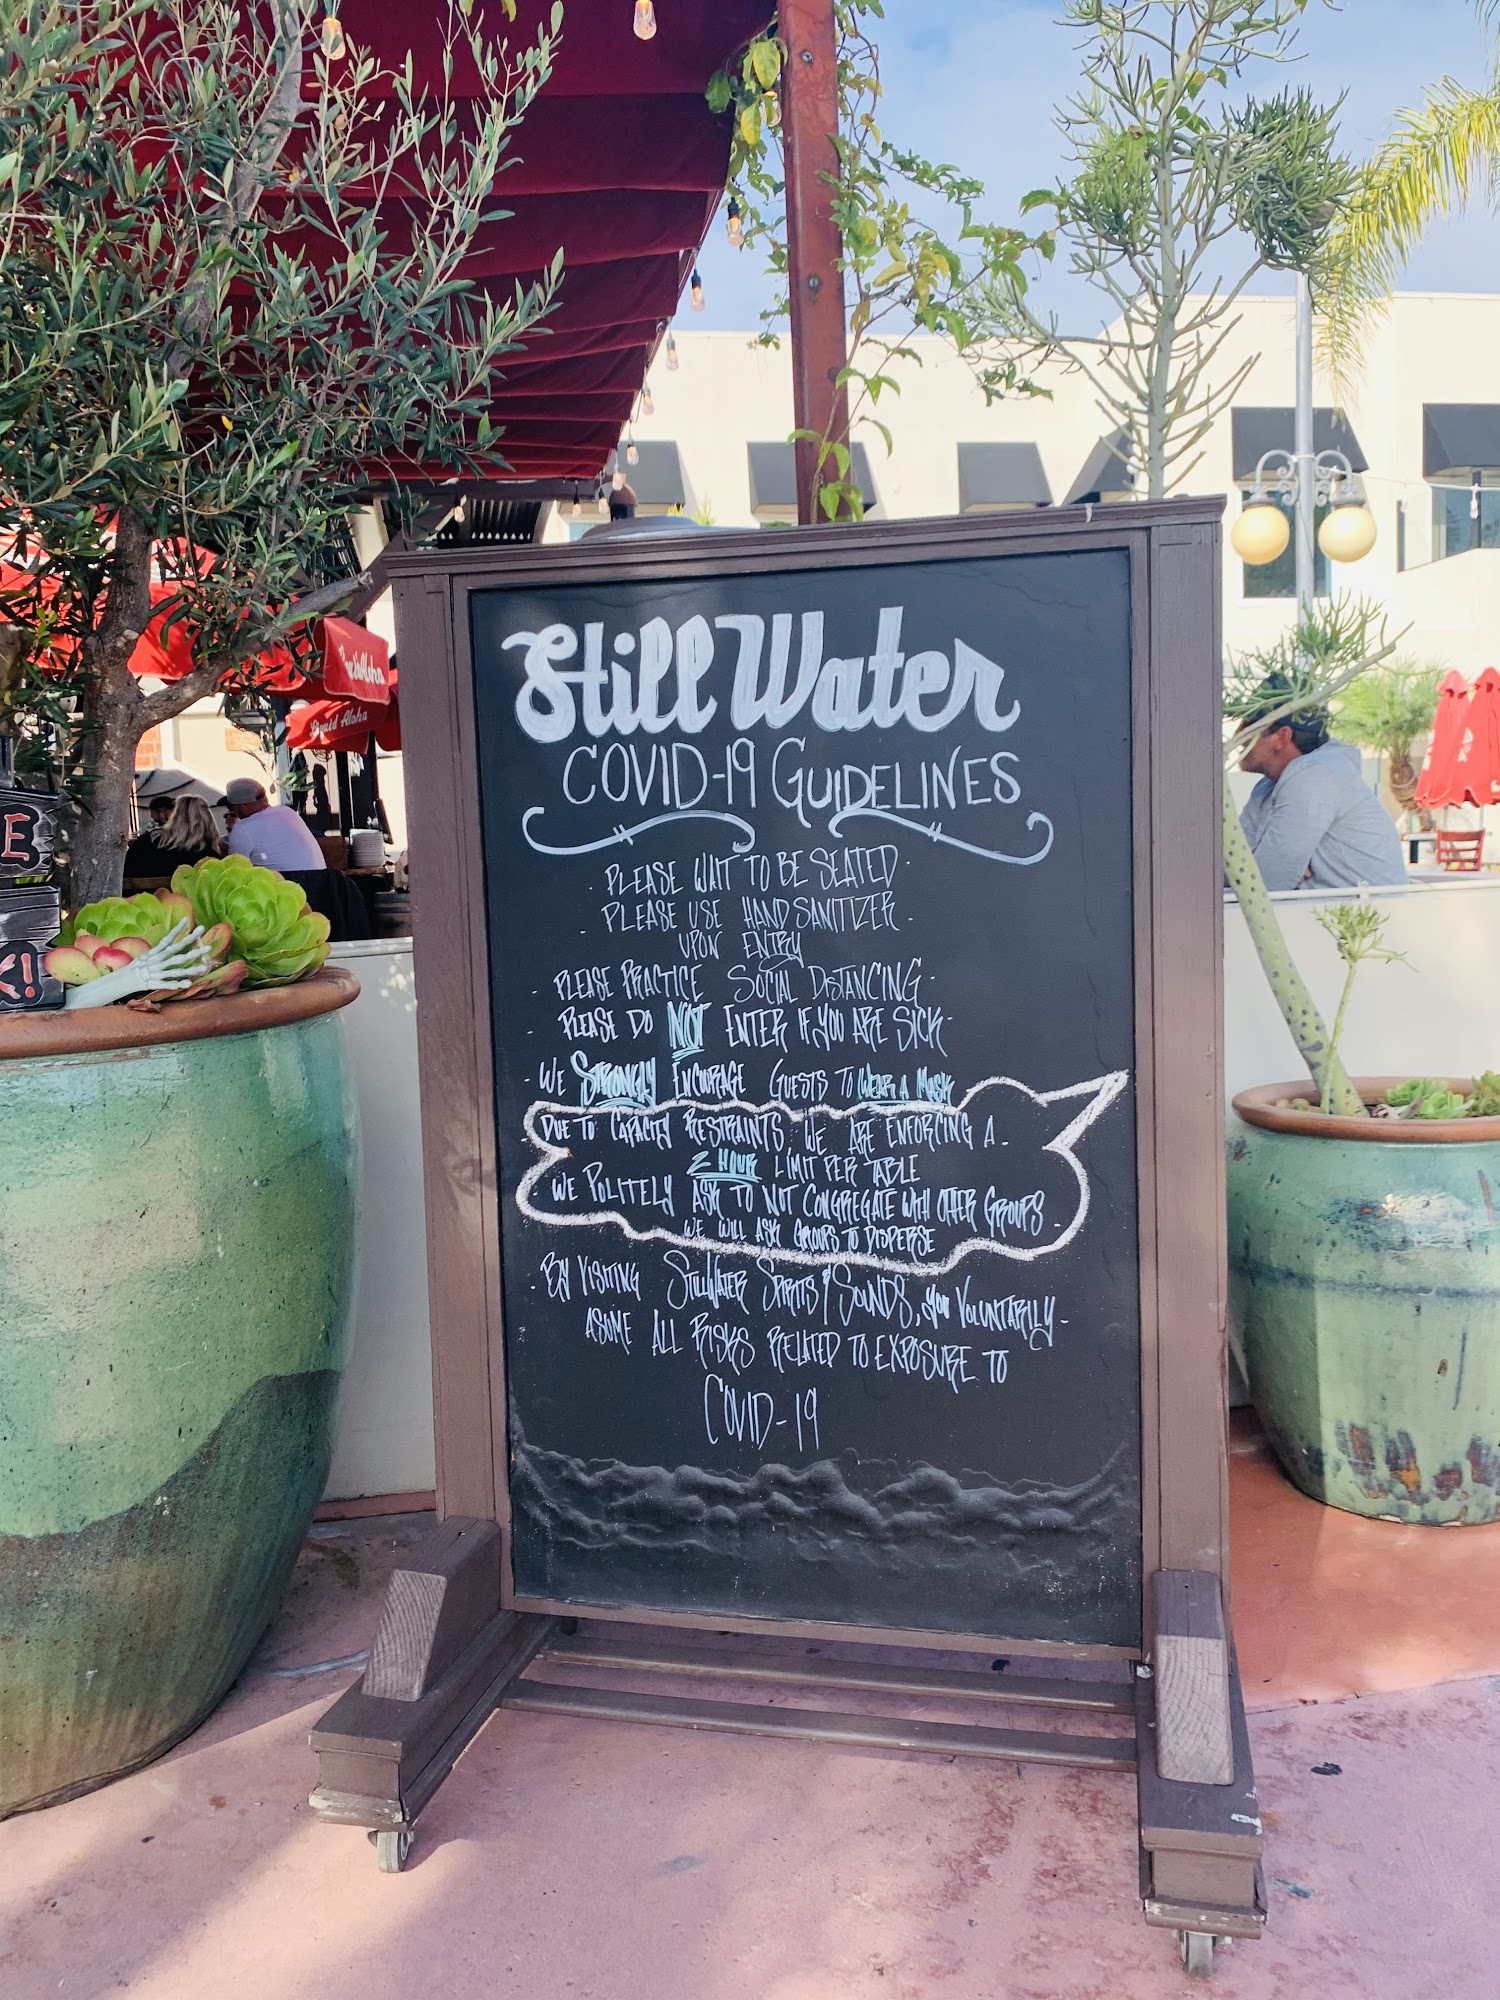 Still Water
COVID-19 GUIDELINES
· PLEASE WAIT TO BE SEATED ·
· PLEASE USE HAND SANITIZER ·
UPON ENTRY
- PLEASE PRACTICE SOCIAL DISTANCING -
- PLEASE DO NOT ENTER IF YOU ARE SICK -
- WE STRONGLY ENCOURAGE GUESTS TO WEAR A MASK
DUE TO CAPACITY RESTRAINTS WE ARE ENFORCING A
2 HOUR LIMIT PER TABLE
WE POLITELY ASK TO NOT CONGREGATE WITH OTHER GROUPS
WE WILL ASK GROUPS TO DISPERSE
- BY VISITING STILLWATER SPIRITS & SOUNDS, YOU VOLUNTARILY -
ASUME ALL RISKS RELATED TO EXPOSURE TO
COVID-19
Liquid Aloha
E
K!